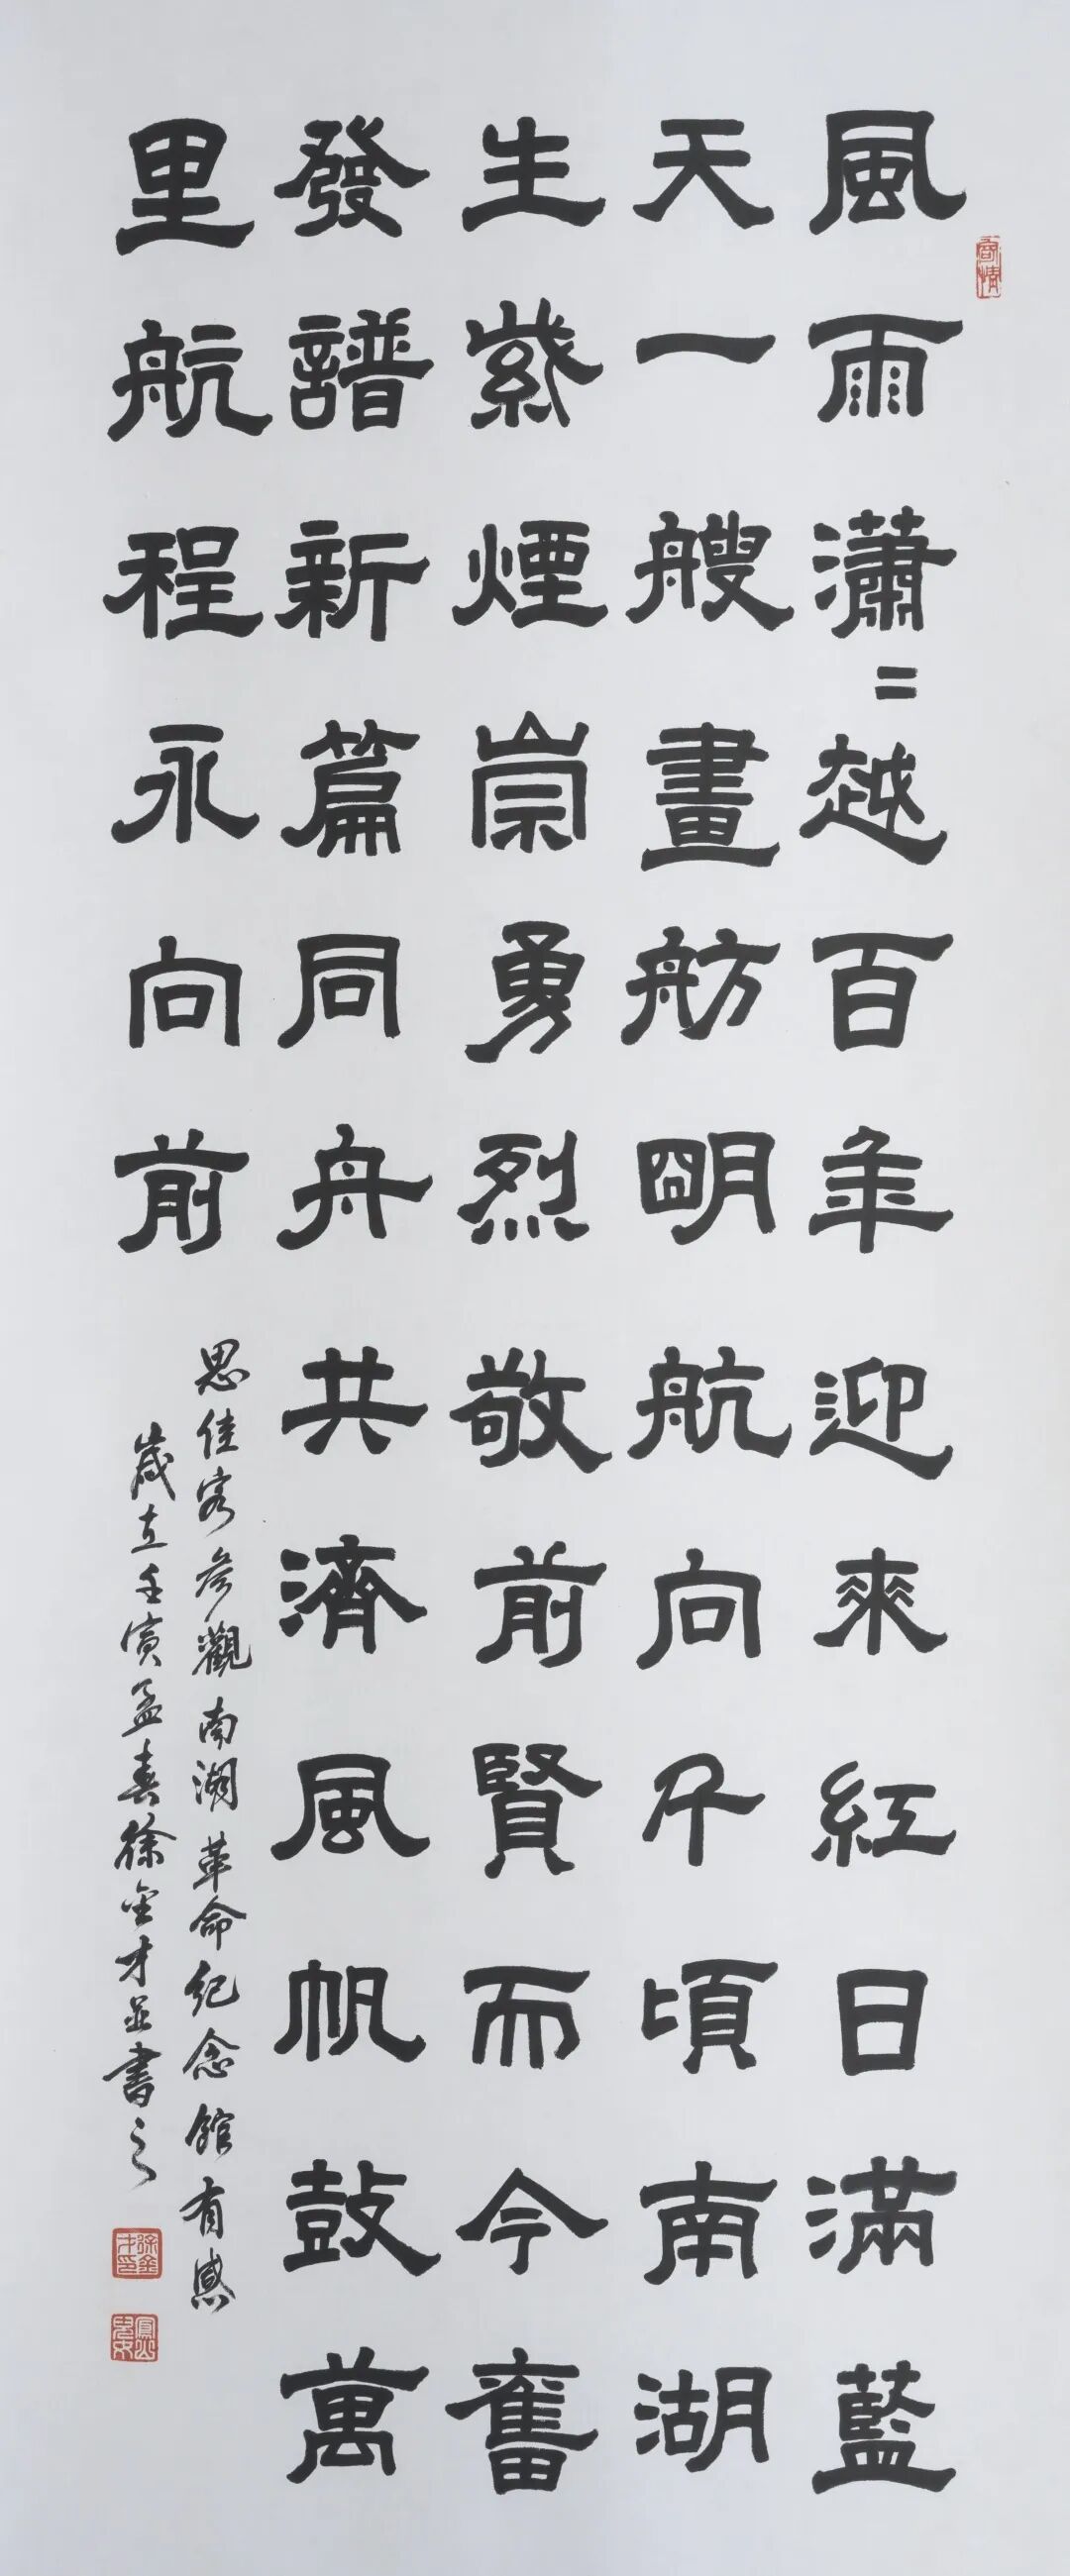 風雨瀟二越百年迎來紅日滿藍
天一艘畫舫明航向千頃南湖
生紫煙崇勇烈敬前賢而今奮
發譜新篇同舟共濟風帆鼓萬
里航程永向前
思佳客參觀南湖革命纪念館有感
歲在壬寅孟春徐金才並書之
徐金才印